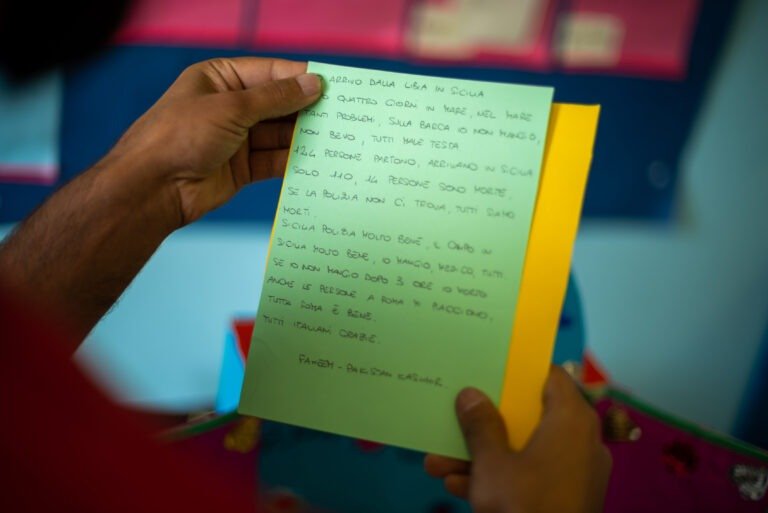 ARRIVO DALLA LIBIA IN SICILIA
QUATTRO GIORNI IN MARE, NEL MARE
TANTI PROBLEMI, SULLA BARCA IO NON MANGIO,
NON BEVO, TUTTI MALE TESTA
124 PERSONE PARTONO, ARRIVANO IN SICILIA
SOLO 110, 14 PERSONE SONO MORTE,
SE LA POLIZIA NON CI TROVA, TUTTI SIAMO
MORTI.
SICILIA POLIZIA MOLTO BENE, IL CAMPO IN
SICILIA MOLTO BENE, IO MANGIO, MEDICO, TUTTI
SE IO NON MANGIO DOPO 3 ORE IO MORTO
ANCHE LE PERSONE A ROMA MI PIACCIONO,
TUTTA ROMA È BENE.
TUTTI ITALIANI GRAZIE.
FAHEEM - PAKISTAN KASHMIR.